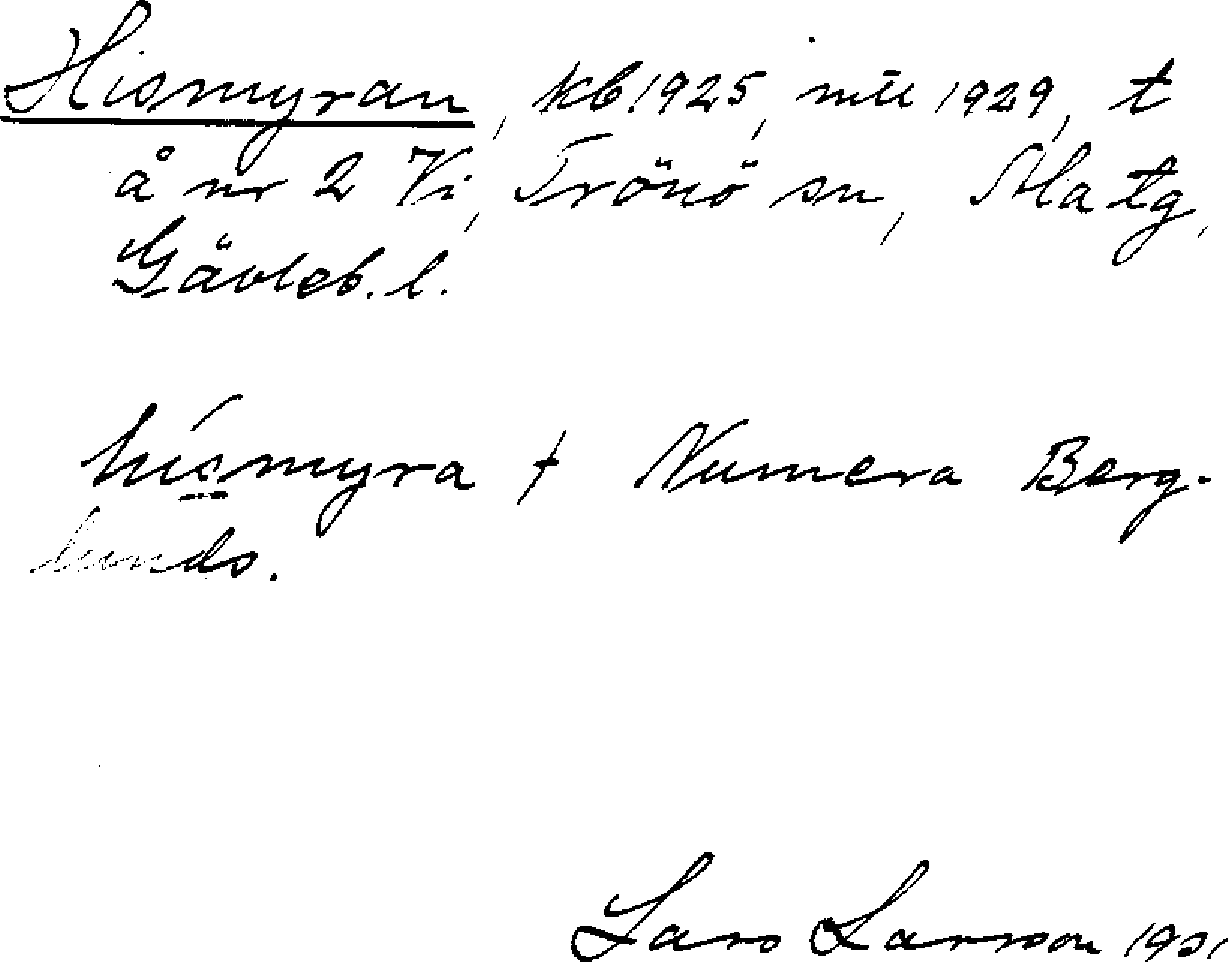 Hismyran, kb. 1925, mtl 1929, t
å nr 2 Vi, Trönö sn, Ala tg,
Gävleb. l.
hísmyra † Numera Berg-
lunds.
Lars Larsson 1931